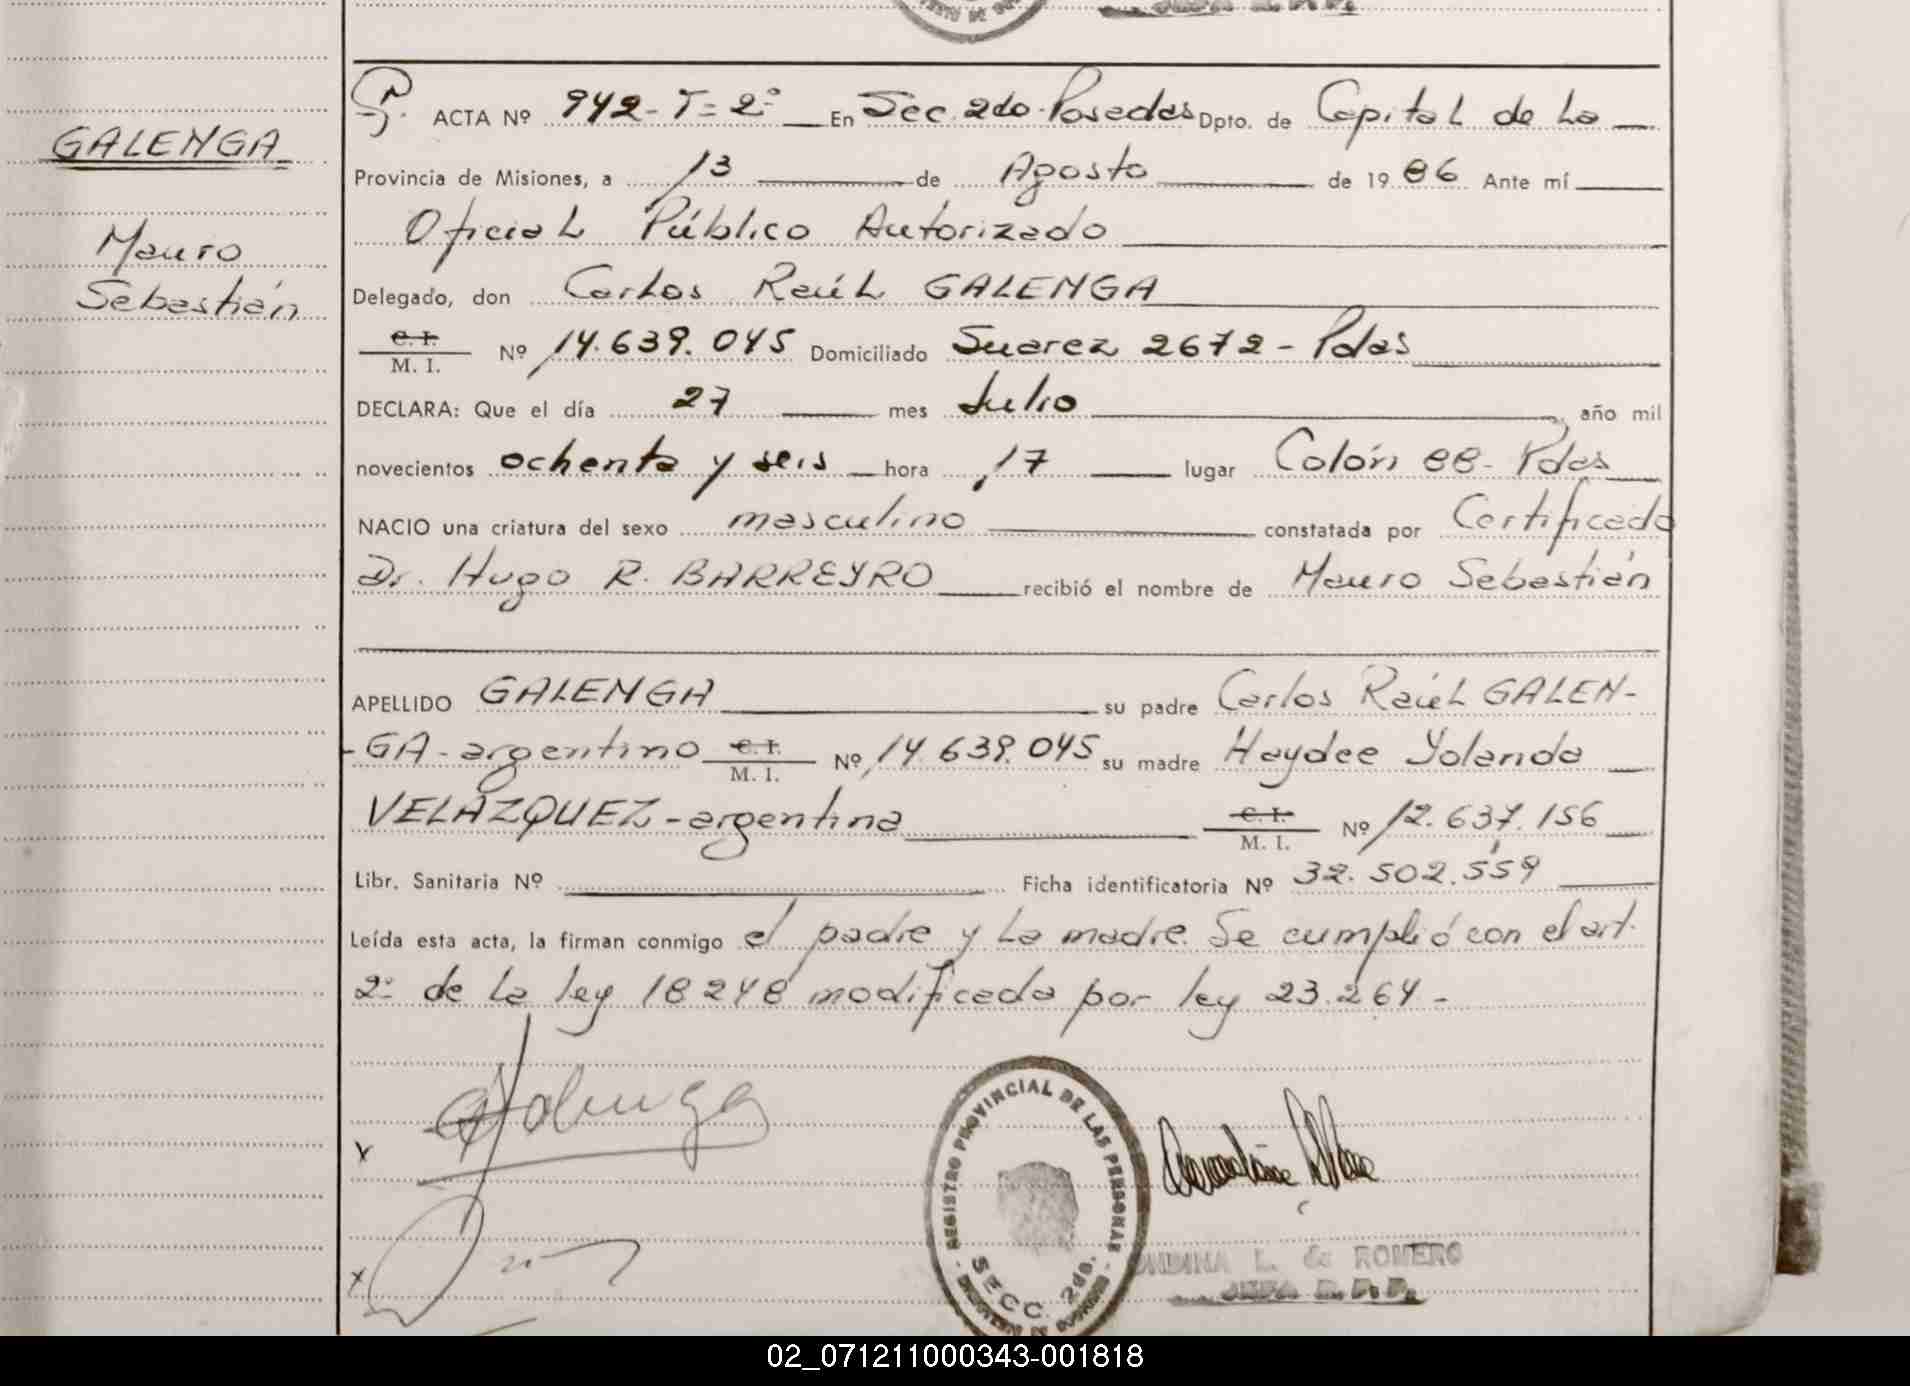 GALENGA
Mauro
Sebastián
ACTA Nº 942- T= 2º En Sec. 2do. Posadas Dpto. de Capital de La
Provincia de Misiones, a 13 de Agosto de 1986 Ante mí
Oficial Público Autorizado
Delegado, don Carlos Raúl GALENGA
C. I.
M. I. Nº 14.639.045 Domiciliado Suarez 2672 - Pdas
DECLARA: Que el día 27 mes Julio, año mil
novecientos ochenta y seis hora 17 lugar Colón 88- Pdas
NACIO una criatura del sexo masculino constatada por Certificado
Dr. Hugo R. BARREYRO recibió el nombre de Mauro Sebastián
APELLIDO GALENGA su padre Carlos Raúl GALEN-
-GA- argentino C. I. M. I. Nº 14.639.045 su madre Haydee Yolanda
VELAZQUEZ - argentina C. I. M. I. Nº 12.637.156
Libr. Sanitaria Nº Ficha identificatoria Nº 32.502.559
Leída esta acta, la firman conmigo el padre y La madre. Se cumplió con el art.
2º de La ley 18248 modificada por ley 23.264.-
Galenga
REGISTRO PROVINCIAL DE LAS PERSONAS
SECC. 2da.
ONDINA L. de ROMERO
JEFA R. P. P.
02_071211000343-001818